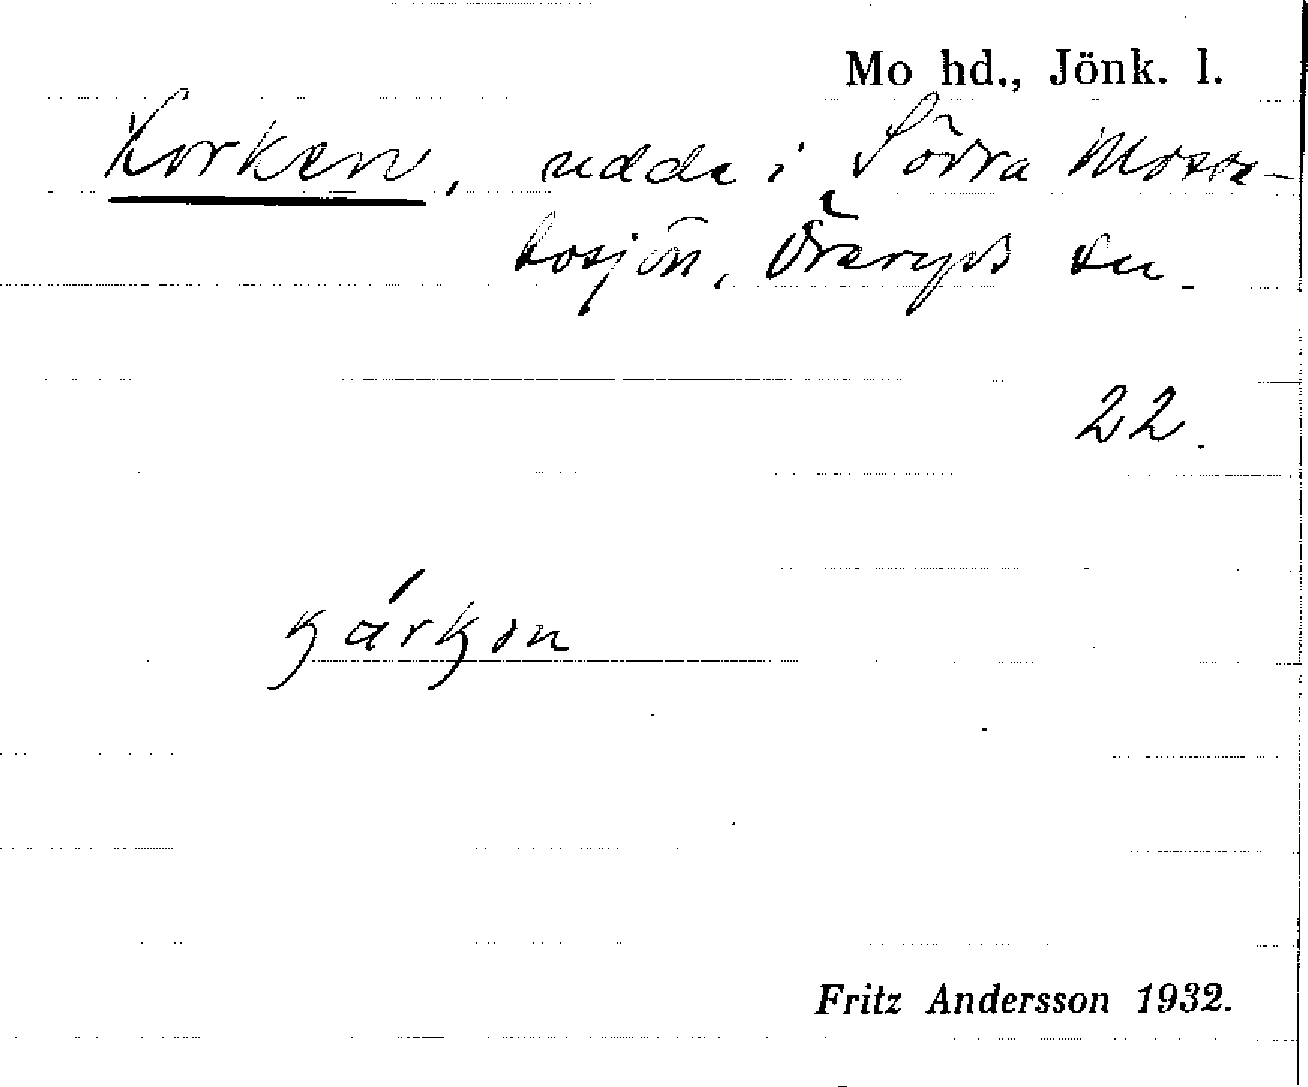 Mo hd., Jönk. l.
Korken, udde i Södra Mosse-
bosjön, Öreryds sn
22.
Fritz Andersson 1932.